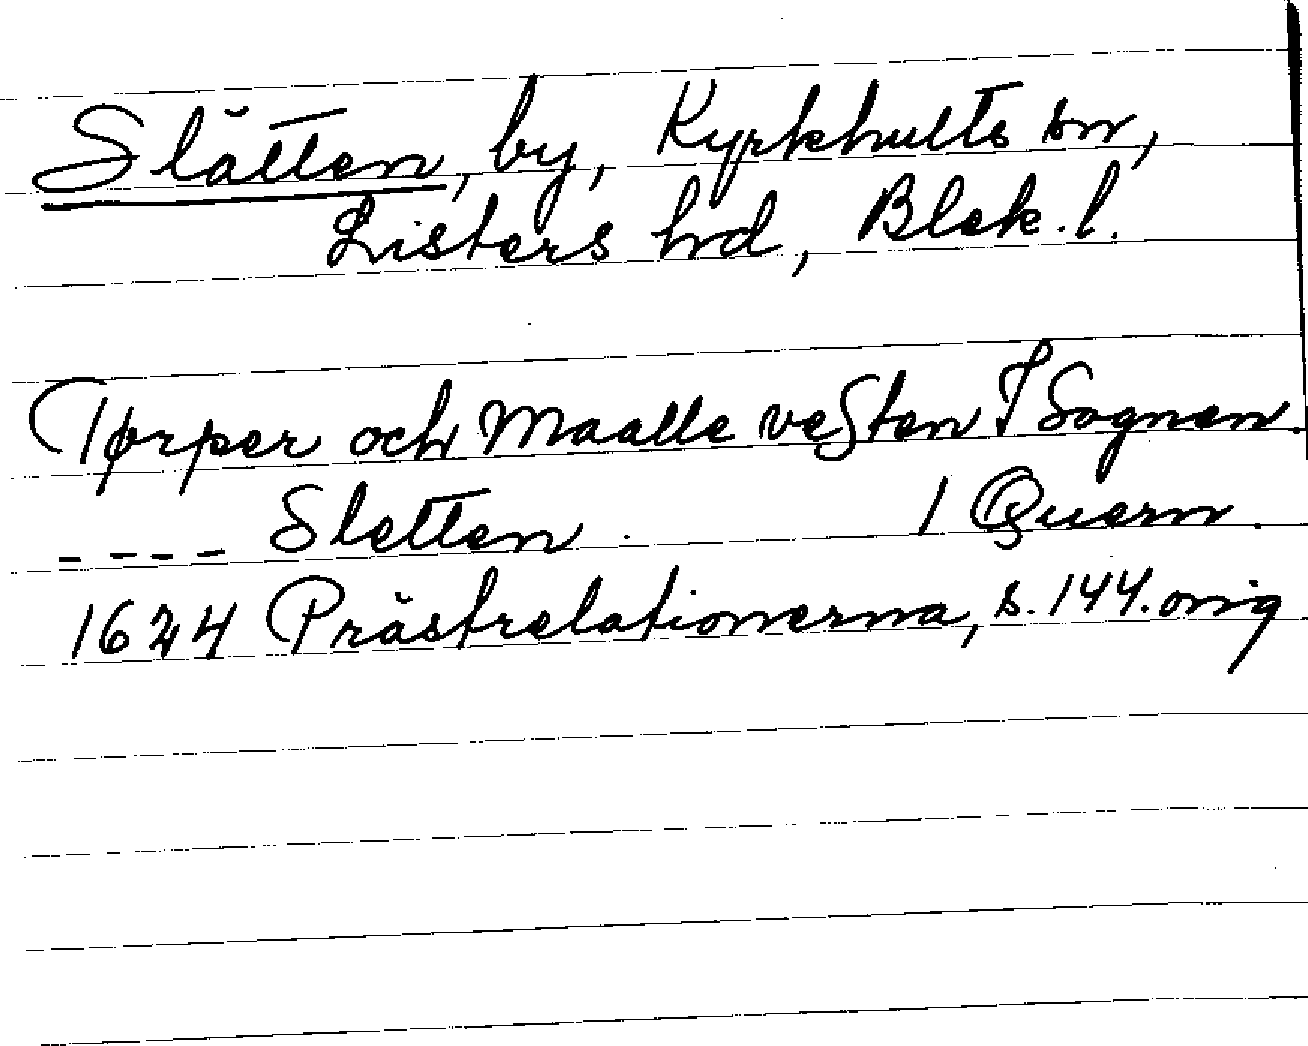 Slätten, by, Kyrkhults sn,
Listers hd, Blek. l.
Tørper och Maalle vesten I Sognen.
---- Sletten. 1 Quern.
1624 Prästrelationerna, s. 144. orig